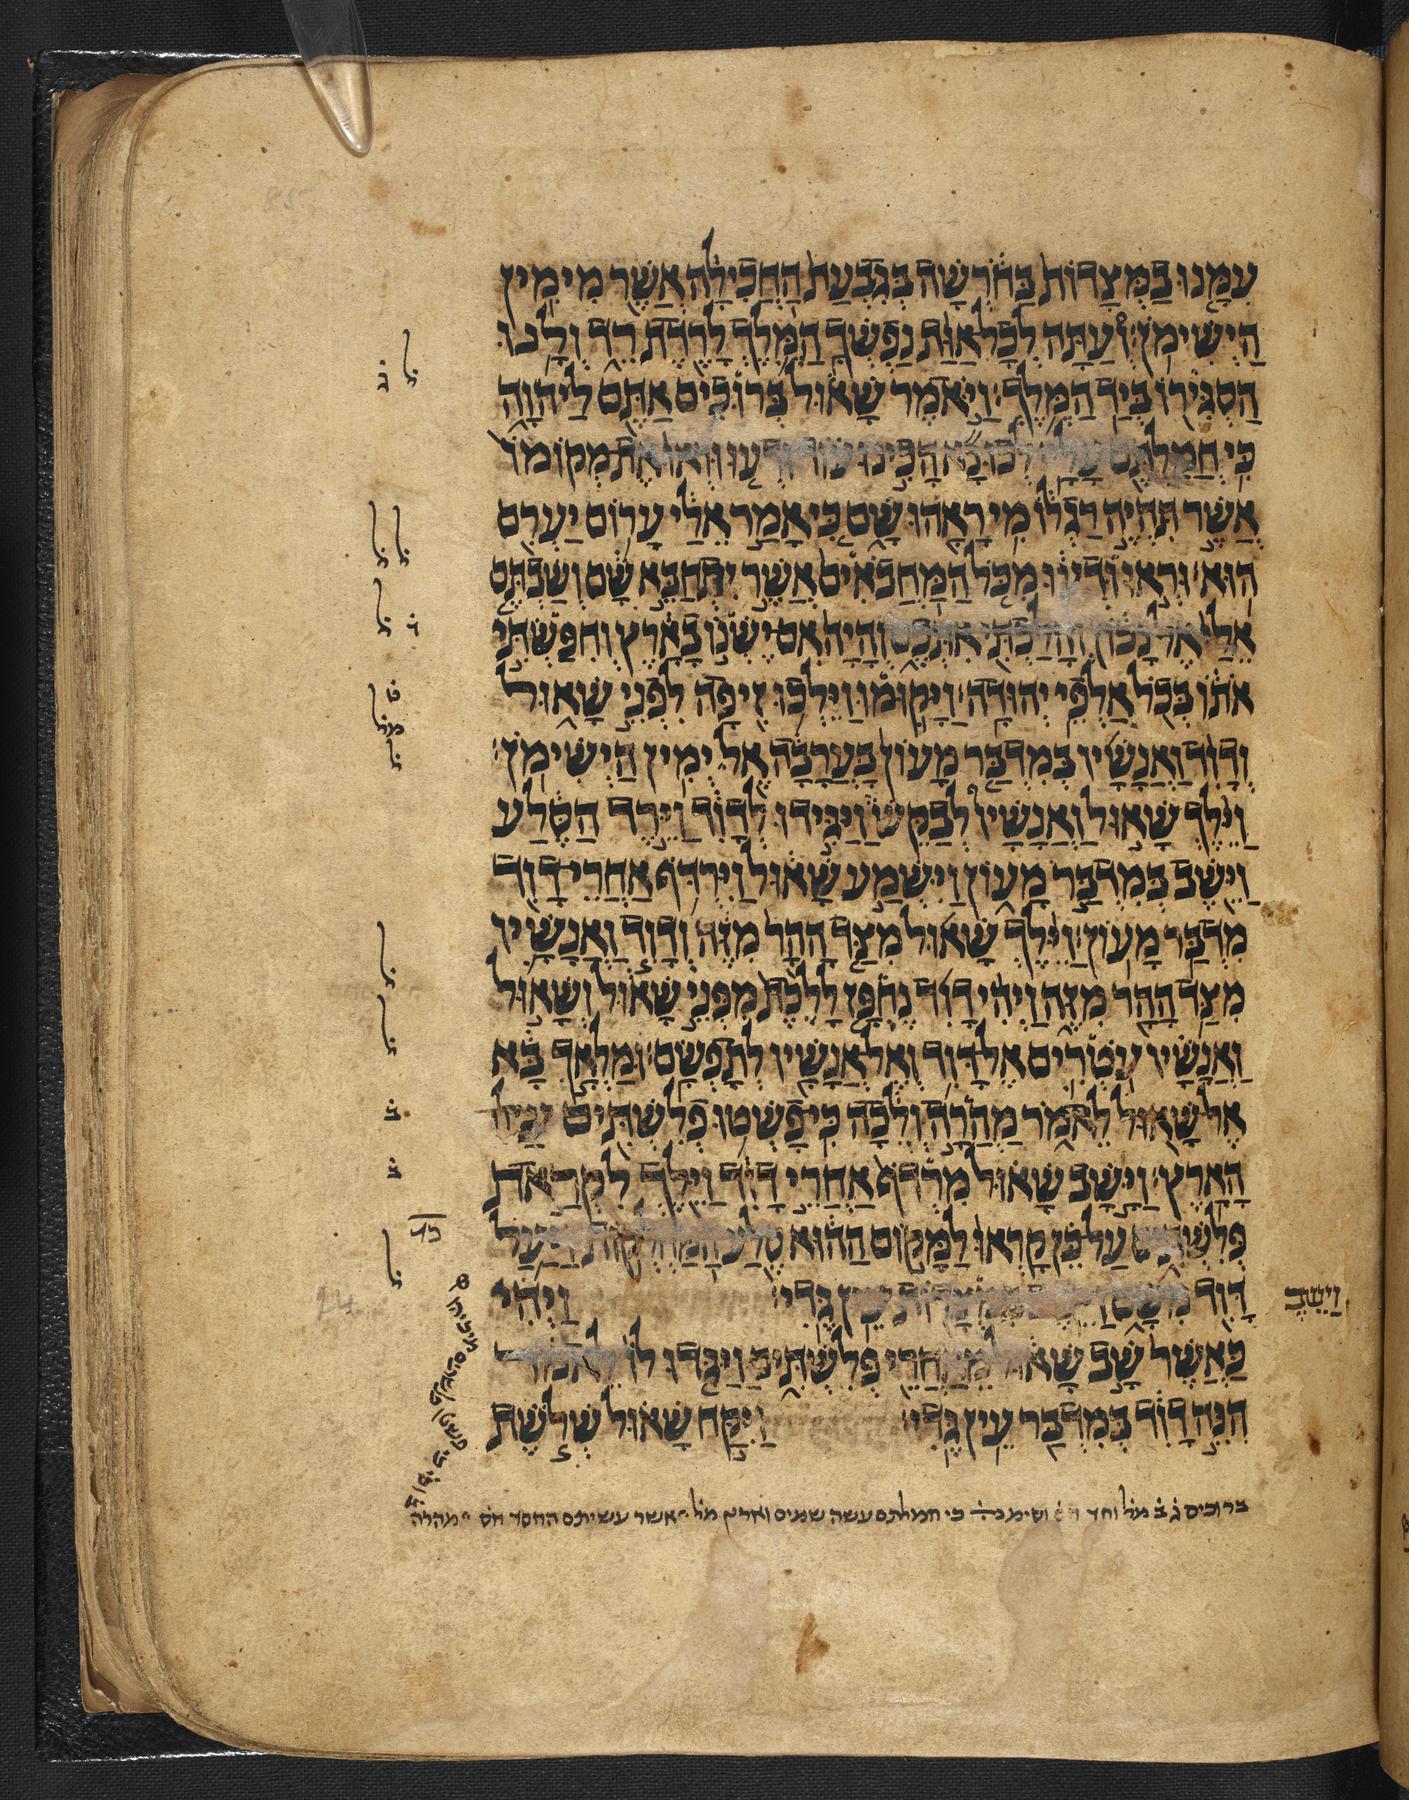 עִמָּנוּ בַמְּצָדוֹת בַּחֹרְשָׁה בְּגִבְעַת הַחֲכִילָה אֲשֶׁר מִימִין
הַיְשִׁימֹן׃ וְעַתָּה לְכָל אַוַּת נַפְשְׁךָ הַמֶּלֶךְ לָרֶדֶת רֵד וְלָנוּ
הַסְגִּירוֹ בְּיַד הַמֶּלֶךְ׃ וַיֹּאמֶר שָׁאוּל בְּרוּכִים אַתֶּם לַיהוָה
כִּי חֲמַלְתֶּם עָלָי׃ לְכוּ נָא הָכִינוּ עוֹד וּדְעוּ וּרְאוּ אֶת מְקוֹמוֹ
אֲשֶׁר תִּהְיֶה רַגְלוֹ מִי רָאָהוּ שָׁם כִּי אָמַר אֵלַי עָרוֹם יַעְרִם
הוּא׃ וּרְאוּ וּדְעוּ מִכָּל הַמַּחֲבֹאִים אֲשֶׁר יִתְחַבֵּא שָׁם וְשַׁבְתֶּם
אֵלַי אֶל נָכוֹן וְהָלַכְתִּי אִתְּכֶם וְהָיָה אִם יֶשְׁנוֹ בָאָרֶץ וְחִפַּשְׂתִּי
אֹתוֹ בְּכֹל אַלְפֵי יְהוּדָה׃ וַיָּקוּמוּ וַיֵּלְכוּ זִיפָה לִפְנֵי שָׁאוּל
וְדָוִד וַאֲנָשָׁיו בְּמִדְבַּר מָעוֹן בָּעֲרָבָה אֶל יְמִין הַיְשִׁימֹן׃
וַיֵּלֶךְ שָׁאוּל וַאֲנָשָׁיו לְבַקֵּשׁ וַיַּגִּידוּ לְדָוִד וַיֵּרֶד הַסֶּלַע
וַיֵּשֶׁב בְּמִדְבַּר מָעוֹן וַיִּשְׁמַע שָׁאוּל וַיִּרְדֹּף אַחֲרֵי דָוִד
מִדְבַּר מָעוֹן׃ וַיֵּלֶךְ שָׁאוּל מִצַּד הָהָר מִזֶּה וְדָוִד וַאֲנָשָׁיו
מִצַּד הָהָר מִזֶּה וַיְהִי דָוִד נֶחְפָּז לָלֶכֶת מִפְּנֵי שָׁאוּל וְשָׁאוּל
וַאֲנָשָׁיו עֹטְרִים אֶל דָּוִד וְאֶל אֲנָשָׁיו לְתָפְשָׂם׃ וּמַלְאָךְ בָּא
אֶל שָׁאוּל לֵאמֹר מַהֲרָה וְלֵכָה כִּי פָשְׁטוּ פְלִשְׁתִּים עַל
הָאָרֶץ׃ וַיָּשָׁב שָׁאוּל מִרְדֹף אַחֲרֵי דָוִד וַיֵּלֶךְ לִקְרַאת
פְּלִשְׁתִּים עַל כֵּן קָרְאוּ לַמָּקוֹם הַהוּא סֶלַע הַמַּחְלְקוֹת׃ וַיַּעַל
דָּוִד מִשָּׁם וַיֵּשֶׁב בִּמְצָדוֹת עֵין גֶּדִי׃ וַיְהִי
וַיֵּשֶׁב
כַּאֲשֶׁר שָׁב שָׁאוּל מֵאַחֲרֵי פְּלִשְׁתִּים וַיַּגִּדוּ לוֹ לֵאמֹר
הִנֵּה דָוִד בְּמִדְבַּר עֵין גֶּדִי׃ וַיִּקַּח שָׁאוּל שְׁלֹשֶׁת
ברוכים ג ב מל וחד חס וסימנה כי חמלתם עשה שמים וארץ מל אשר עשיתם החסד חס מהרה